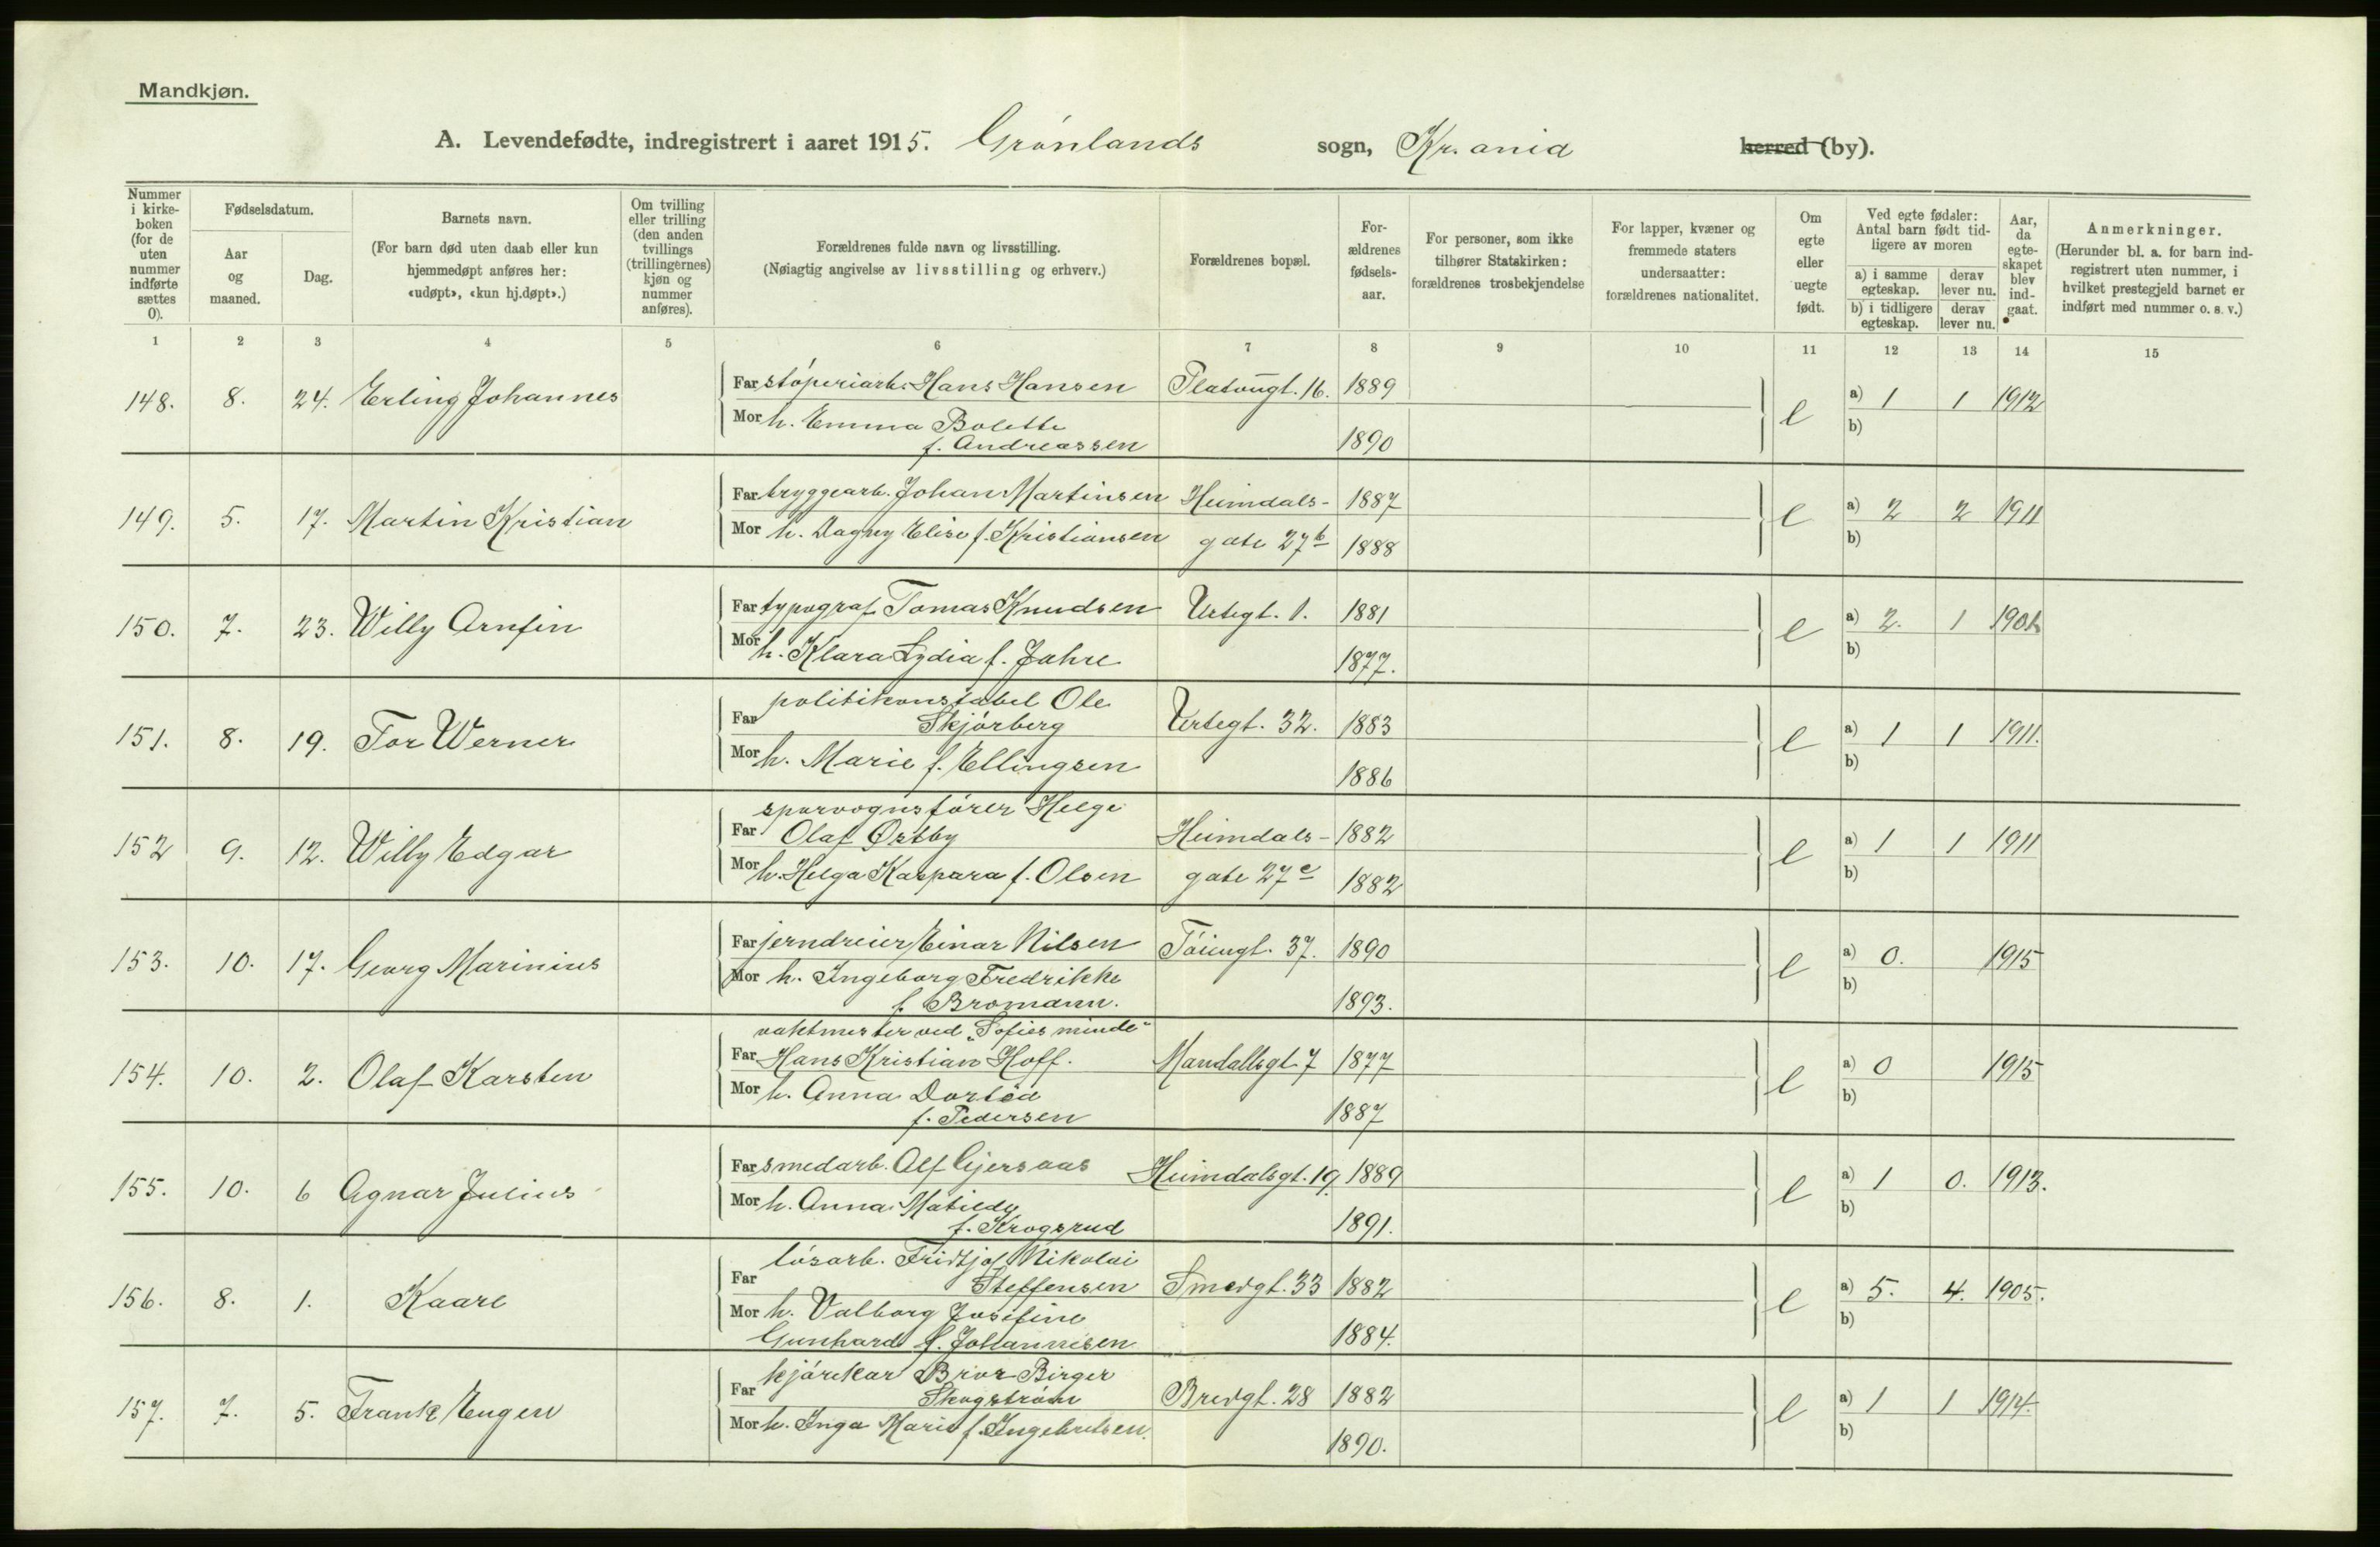 Mandkjøn.
A. Levendefødte, indregistrert i aaret 1915. Grønlands sogn, Kr.ania herred (by).
Nummer i kirke-boken (for de uten nummer indførte sættes 0).
Fødselsdatum.
Aar og maaned.
Dag.
Barnets navn.
(For barn død uten daab eller kun hjemmedøpt anføres her: «udøpt», «kun hj.døpt».)
Om tvilling eller trilling (den anden tvillings (trillingernes) kjøn og nummer anføres).
Forældrenes fulde navn og livsstilling.
(Nøiagtig angivelse av livsstilling og erhverv.)
Forældrenes bopæl.
For-ældrenes fødsels-aar.
For personer, som ikke tilhører Statskirken: forældrenes trosbekjendelse
For lapper, kvæner og fremmede staters undersaatter: forældrenes nationalitet.
Om egte eller uegte født.
Ved egte fødsler: Antal barn født tid-ligere av moren
a) i samme egteskap.
derav lever nu.
b) i tidligere egteskap.
derav lever nu.
Aar, da egte-skapet blev ind-gaat.
Anmerkninger.
(Herunder bl. a. for barn ind-registrert uten nummer, i hvilket prestegjeld barnet er indført med nummer o. s. v.)
1 2 3 4 5 6 7 8 9 10 11 12 13 14 15
148. 8. 24. Erling Johannes Far støperiarb. Hans Hansen Platougt. 16. 1889 e a) 1 1 1912
Mor h. Emma Bolette
f. Andreassen 1890 b)
149. 5. 17. Martin Kristian Far bryggearb. Johan Martinsen Heimdals- 1887 e a) 2 2 1911
Mor h. Dagny Elise f. Kristiansen gate 27b 1888 b)
150. 7. 23. Willy Arnfin Far typograf Tomas Knudsen Urtegt. 1. 1881 e a) 2. 1
Mor h. Klara Lydia f. Jahre 1877. b)
151. 8. 19. Tor Werner politikonstabel Ole
Far Skjørberg Urtegt. 32. 1883 e a) 1 1 1911.
Mor h. Marie f. Ellingsen 1886 b)
152 9. 12. Willy Edgar sporvognsfører Helge
Far Olaf Østby Heimdals- 1882 e a) 1 1 1911
Mor h. Helga Kaspara f. Olsen gate 27c 1882 b)
153. 10. 17. Georg Marinius Far jerndreier Einar Nilsen Tøiengt. 37. 1890 e a) 0. 1915
Mor h. Ingeborg Fredrikke
f. Bromann. 1893. b)
154. 10. 2. Olaf Karsten vaktmester ved "Sofies minde"
Far Hans Kristian Hoff. Mandallsgt. 7 1877 e a) 0 1915
Mor h. Anna Dortea
f. Pedersen 1887 b)
155. 10. 6 Agnar Julius Far smedarb. Alf Gjersaas Heimdalsgt. 19. 1889 e a) 1 0. 1913.
Mor h. Anna Matilde
f. Krogsrud 1891. b)
156. 8. 1. Kaare løsarb. Fridtjof Nikolai
Far Steffensen Smedgt. 33 1882 e a) 5. 4. 1905.
Mor h. Valborg Josefine
Gunhard f. Johannisen 1884. b)
157. 7. 5. Frank Eugen kjørekar Bror Birger
Far Skogstrøm Bredgt. 28 1882 e a) 1 1 1914.
Mor h. Inga Marie f. Ingebretsen. 1890. b)